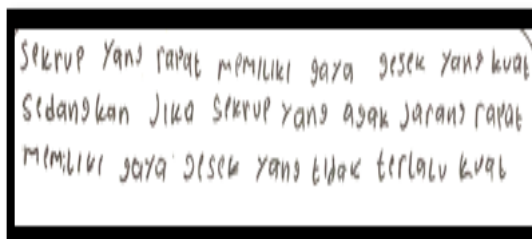 Sekrup yang rapat memiliki gaya gesek yang kuat
sedangkan jika sekrup yang agak jarang rapat
memiliki gaya gesek yang tidak terlalu kuat